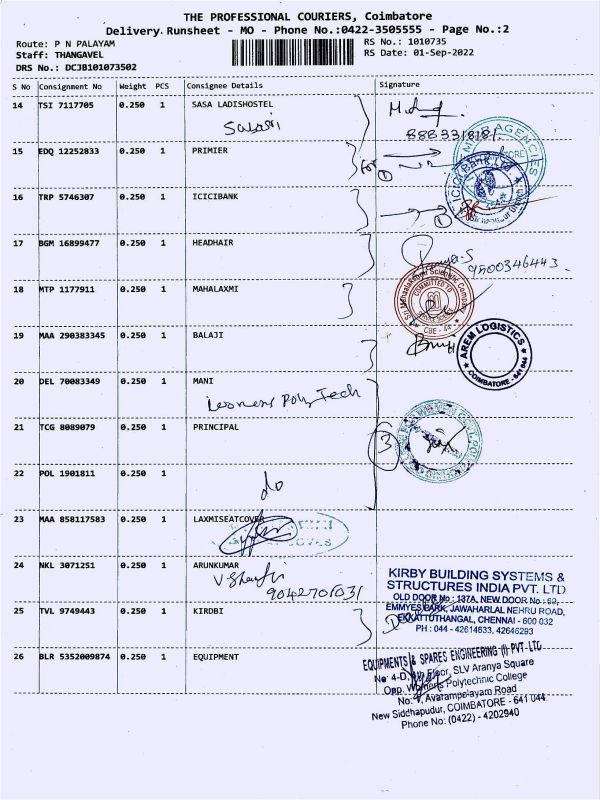 THE PROFESSIONAL COURIERS, Coimbatore
Delivery Runsheet - MO - Phone No.:0422-3505555 - Page No.:2
Route: P N PALAYAM
RS No.: 1010735
Staff: THANGAVEL
RS Date: 01-Sep-2022
DRS No.: DCJB101073502
S No Consignment No Weight PCS Consignee Details Signature
14 TSI 7117705 0.250 1 SASA LADISHOSTEL
8883318181
15 EDQ 12252833 0.250 1 PRIMIER
AGENCIES
16 TRP 5746307 0.250 1 ICICIBANK
ICICI BANK LTD
17 BGM 16899477 0.250 1 HEADHAIR
9500346443
18 MTP 1177911 0.250 1 MAHALAXMI
Sri Mahalakshmi Scientific Company
COMMITTED TO
CBE - 44
19 MAA 290383345 0.250 1 BALAJI
AREM LOGISTICS
COIMBATORE - 641 044
20 DEL 70083349 0.250 1 MANI
womens Poly Tech
21 TCG 8089079 0.250 1 PRINCIPAL
3
22 POL 1901811 0.250 1
do
23 MAA 858117583 0.250 1 LAXMISEATCOVER
24 NKL 3071251 0.250 1 ARUNKUMAR
9042701031
KIRBY BUILDING SYSTEMS &
STRUCTURES INDIA PVT. LTD
OLD DOOR No : 137A, NEW DOOR No : 69,
25 TVL 9749443 0.250 1 KIRDBI
EMMYES PARK, JAWAHARLAL NEHRU ROAD,
EKKATTUTHANGAL, CHENNAI - 600 032
PH : 044 - 42614633, 42646293
26 BLR 5352009874 0.250 1 EQUIPMENT
EQUIPMENTS & SPARES ENGINEERING (I) PVT. LTD
No: 4-D, Floor, SLV Aranya Square
Opp. Womens Polytechnic College
Avarampalayam Road
New Siddhapudur, COIMBATORE - 641 044
Phone No: (0422) - 4202940